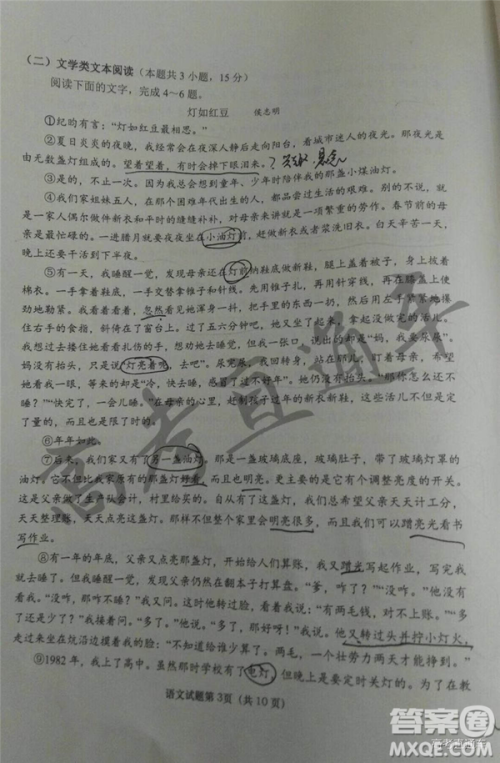 （二）文学类文本阅读（本题共3小题，15分）
阅读下面的文字，完成4～6题。
灯如红豆 侯志明
①纪昀有言：“灯如红豆最相思。”
②夏日炎炎的夜晚，我们会经常在夜深人静后走向阳台，看城市迷人的夜光。那夜光是
由无数盏灯组成的。望着望着，有时会掉下眼泪来。
③是的，不止一次。因为我总会想到童年、少年时陪伴我的那盏小煤油灯。
④我们家姐妹五人，在那个困难年代出生的人，都品尝过生活的艰难。别的不说，就
是一家人偶尔做件新衣和平时的缝缝补补，对母亲来讲就是一项繁重的劳作。春节前的母
亲是最忙碌的。一进腊月就要夜夜坐在小油灯前，赶做新衣或者浆洗旧衣。白天辛苦一天，
晚上还要干活到下半夜。
⑤有一天，我睡醒一觉，看到母亲还在灯前纳鞋底做新鞋，腿上盖着被子，身上披着棉
衣，一手拿着鞋底，一手交替拿锥子和针线。先用锥子扎，再用针穿线，再从另一面
劲地勒紧。我看着看着，忽然看见她浑身一抖，把手里的
住右手的食指，斜倚在了窗台上。过了五六分钟吧，她又坐了起来，拿起没做完的活儿。
我问妈
妈没有抬头，只是说“灯亮着呢，去吧”。尿完尿，我回转身，站在那儿，盯着母亲，希望
她看我一眼，等来的却是“冷，快去睡，会感冒的”。她仍没有抬头。“那你怎么还不
睡？”“快完了，一会儿睡。”在母亲的心里，赶制孩子过年的新衣新鞋，这些活儿都是定
量的，而且也是有时限的。
⑥年年如此。
⑦后来，我们家又有了另一盏油灯，那是一盏玻璃底座，玻璃肚子，带了玻璃灯罩的
油灯。它不但比家里原有的那盏灯好看，而且明亮。更主要的是，它有个调整亮度的开关。
这是父亲做了生产队会计，村里给买的。自从有了这盏灯，我们总希望父亲天天计工分，
天天整理题文，天天点那盏灯。那样不但整个世界会明亮很多，而且我们可以蹭亮光看书
写作业。
⑧有一年的年底，父亲又点亮那盏灯。我又蹭光写起作业，写完我
就去睡了。但我睡醒一觉，发现父亲仍然在翻本子打算盘。“爹，咋了？”“没咋。”他没有
看我。“没咋，那咋不睡？”我又问。这时他才转过脸，看着我说：“有两毛钱，对不上了。”“多
了还是少了？”“多了。”“多了，那怕啥哩！”我说。他又转过头并拧小灯火，
走过来坐在炕沿边摸着我的脸：“不知道给谁少算了。两毛，一个壮劳力两天的工钱呢！”
⑨1982年，我上了高中。虽然那时学校有了电灯，但是晚上是要定时关灯的。我为
语文试题第3页（共10页）
高考直通车
答案圈